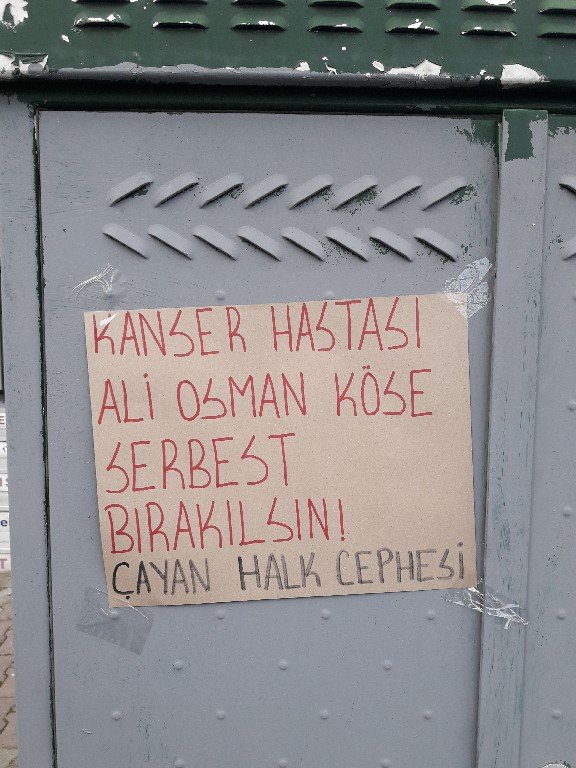 KANSER HASTASI
ALİ OSMAN KÖSE
SERBEST
BIRAKILSIN!
ÇAYAN HALK CEPHESİ